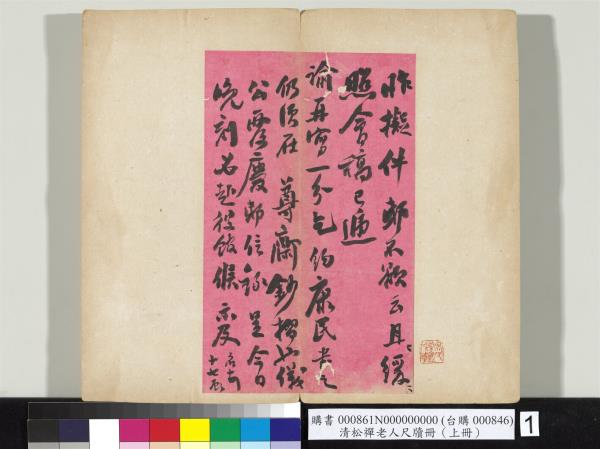 昨擬件邸不欲云且緩
照會稿已遞
諭再寫一分乞飭康民書之
仍須在 尊齋鈔摺也儀
公覆慶邸信錄呈今日
晚刻各赴役館候 示及
十七
購書 000861N000000000 (台購 000846)
清松禪老人尺牘冊（上冊）
1